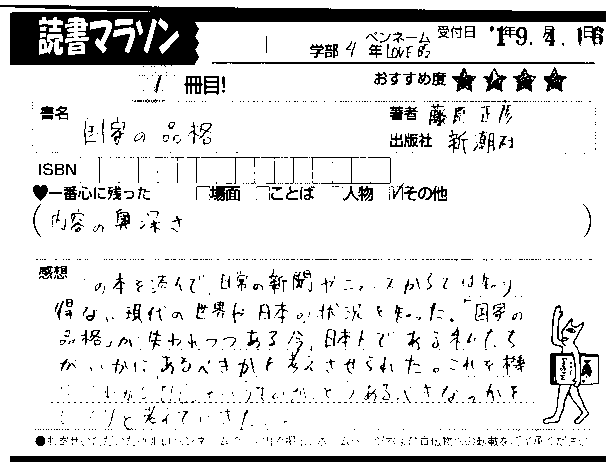 読書マラソン
学部 4 年 ペンネーム LOVE B'z 受付日 '19. 4. 16
1 冊目! おすすめ度 ★★★★
書名 国家の品格
著者 藤原正彦
出版社 新潮社
ISBN
♥一番心に残った □場面 □ことば □人物 ☑その他
(内容の奥深さ)
感想
の本を読んで、日常の新聞やニュースからでは知り
得ない現代の世界や日本の状況を知った。「国家の
品格」が失われつつある今、日本人である私たち
がいかにあるべきかを考えさせられた。これを機
どうあるべきなのかを
と考えていきた